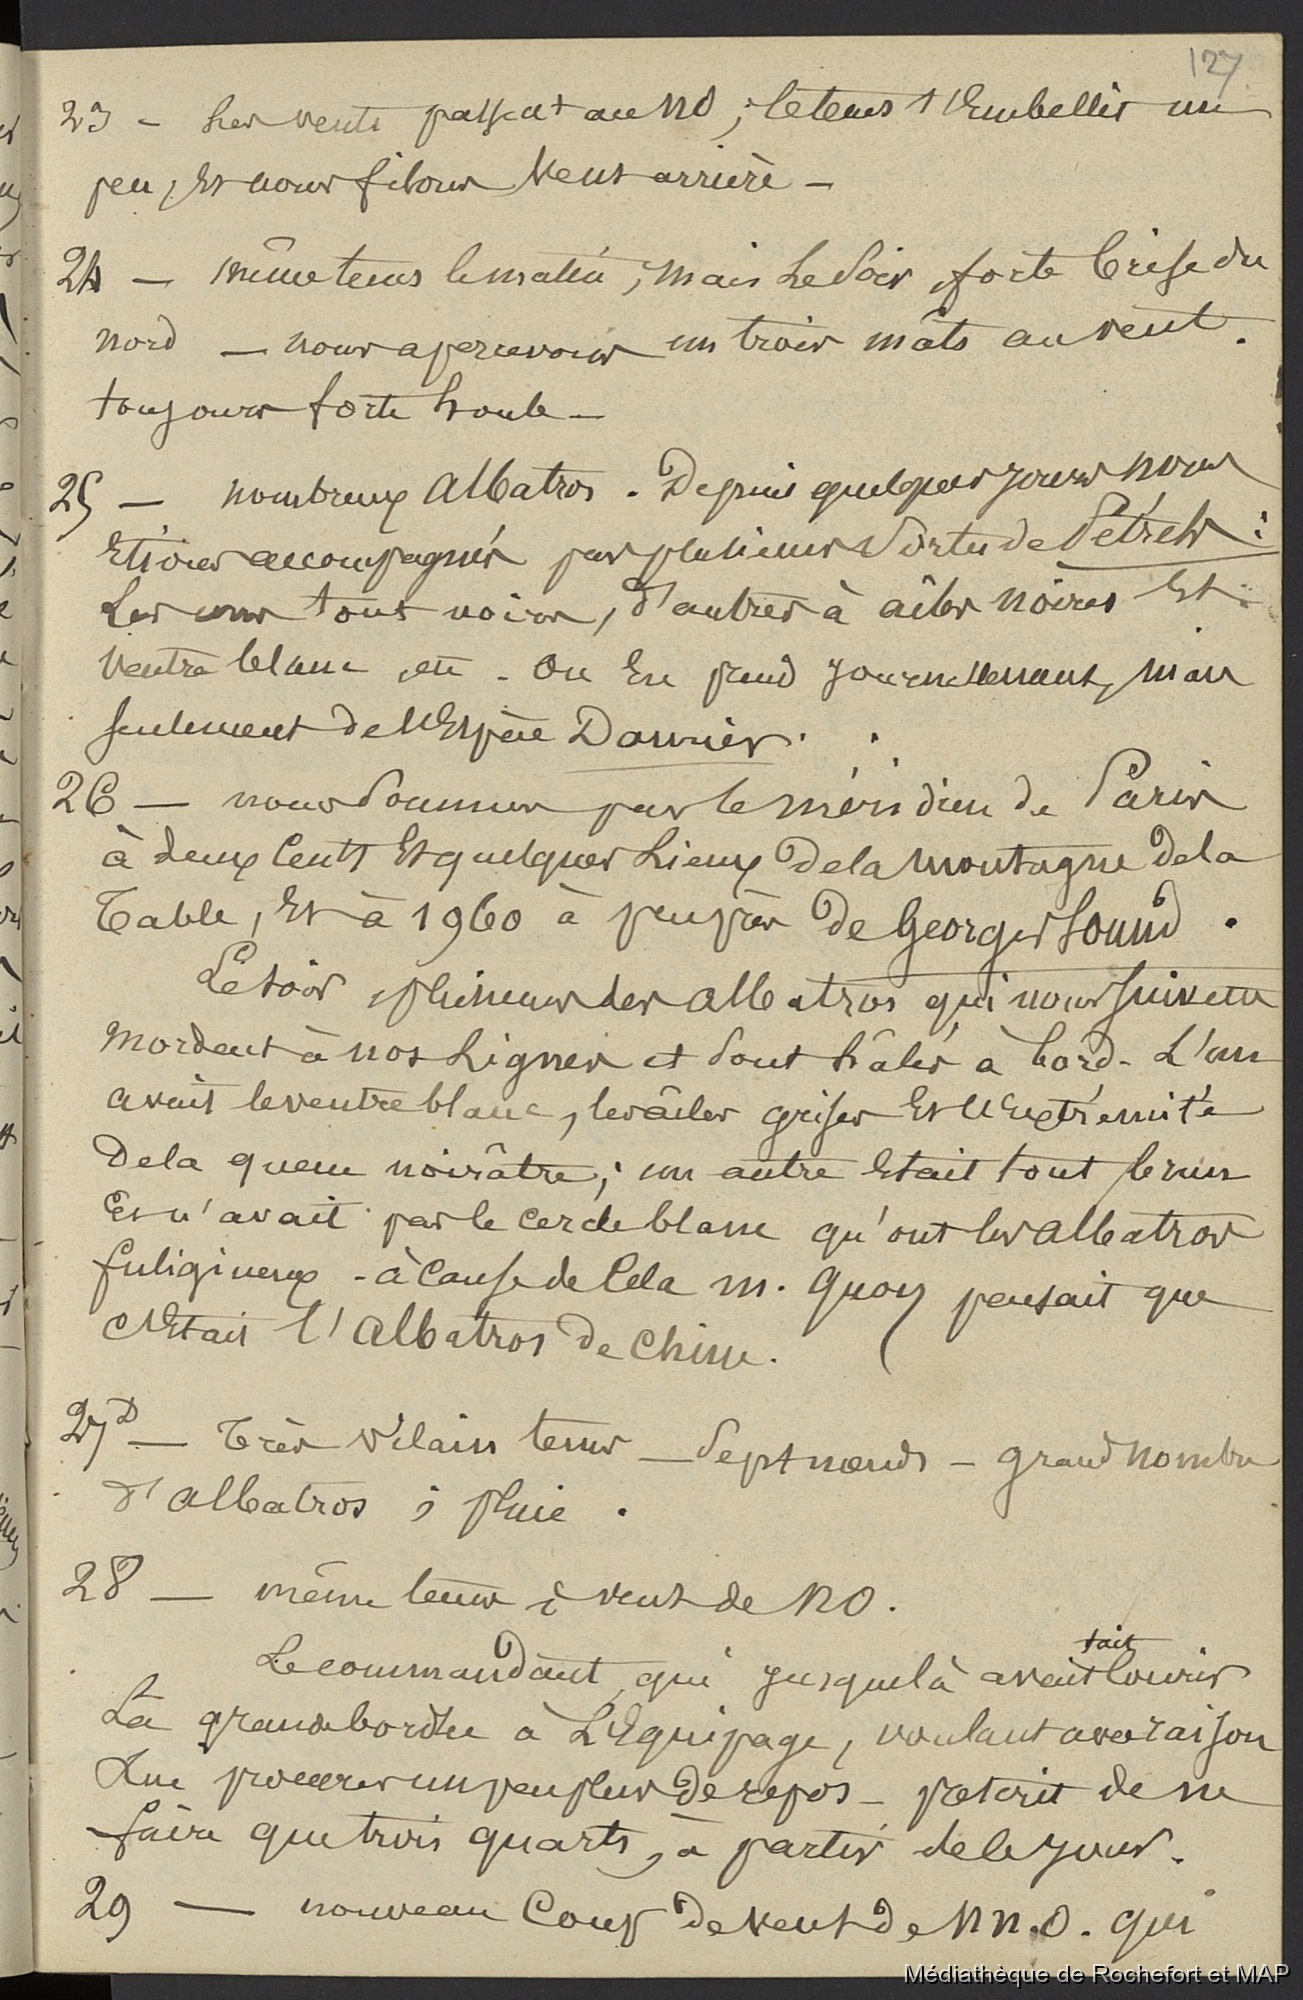 127
23 - Les vents passent au NO ; le tems s'Embellit un
peu, Et nous filons Vent arrière -
24 - même tems le matin, mais Le Soir, forte brise du
nord - nous apercevons un trois mâts au vent.
toujours forte houle -
25 - nombreux Albatros. Depuis quelques jours nous
Etions accompagnés par plusieurs Sortes de Pétrels :
Les uns tout noirs, d'autres à aîles noires Et
Ventre blanc, etc. On En prend journellement, mais
seulement de l'Espèce Damier.
26 - nous Sommes par le méridien de Paris
à deux Cents Et quelques Lieux de la montagne de la
Table, Et à 1960 à peu près de Georges Sound.
Le soir, plusieurs des albatros qui nous suivent
mordent à nos Lignes et Sont hâlés à bord. L'un
avait le ventre blanc, les aîles grises Et l'Extrémité
de la queue noirâtre ; un autre Etait tout brun
Et n'avait pas le cercle blanc qu'ont les albatros
fuligineux - à Cause de Cela m. Quoy pensait que
c'Etait l'Albatros de Chine.
27 D - Très Vilain tems - Sept nœuds - grand nombre
d'Albatros ; pluie.
28 - même tems ; vent de NO.
Le commandant, qui jusque là avait fait Courir
La grande bordée à L'Equipage, voulant avec raison
Lui procurer un peu plus de repos - prescrit de ne
faire que trois quarts, à partir de Ce jour.
29 - nouveau Coup de Vent de NN.O. qui
Médiathèque de Rochefort et MAP